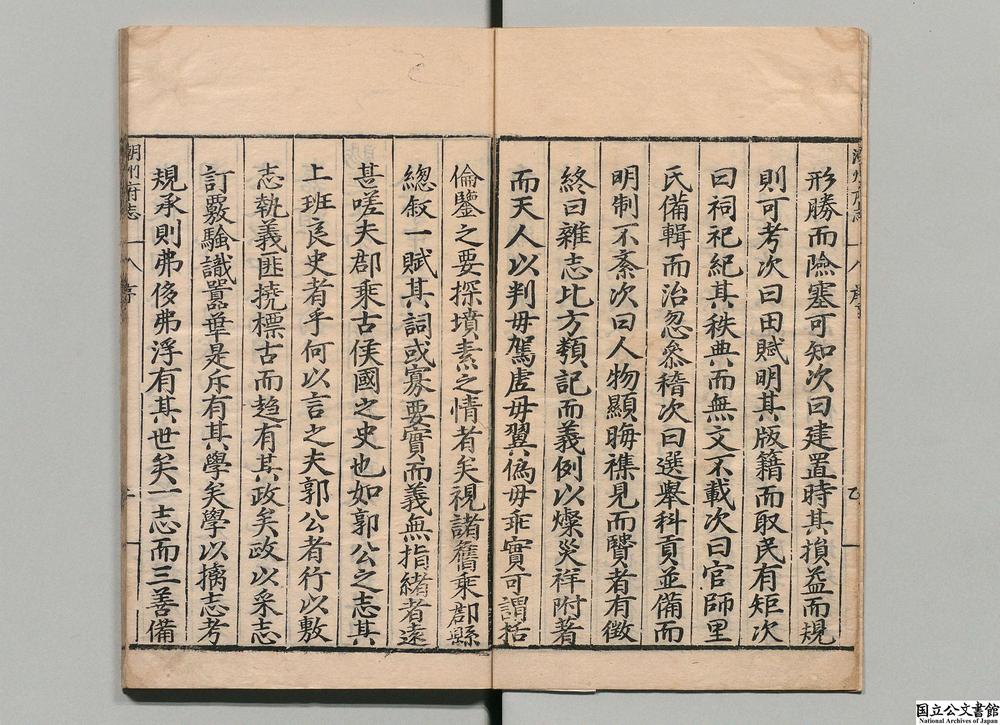 形勝而險塞可知次曰建置時其損益而規
則可考次曰田賦明其版籍而取民有矩次
曰祠祀紀其秩典而無文不載次曰官師里
氏備輯而治忽叅稽次曰選舉科貢並備而
明制不紊次曰人物顯晦襍見而贒者有徵
終曰雜志比方類記而義例以燦災祥附著
而天人以判毋駕虛毋翼僞毋乖實可謂括
倫鑒之要探墳素之情者矣視諸舊乘郡縣
總叙一賦其詞或寡要實而義無指緒者遠
甚嗟夫郡乘古侯國之史也如郭公之志其
上班良史者乎何以言之夫郭公者行以敷
志執義匪撓標古而趋有其政矣政以采志
訂覈騐識嚣華是斥有其學矣學以摛志考
規承則弗侈弗浮有其世矣一志而三善備
潮州府志
八
序
二
国立公文書館
National Archives of Japan